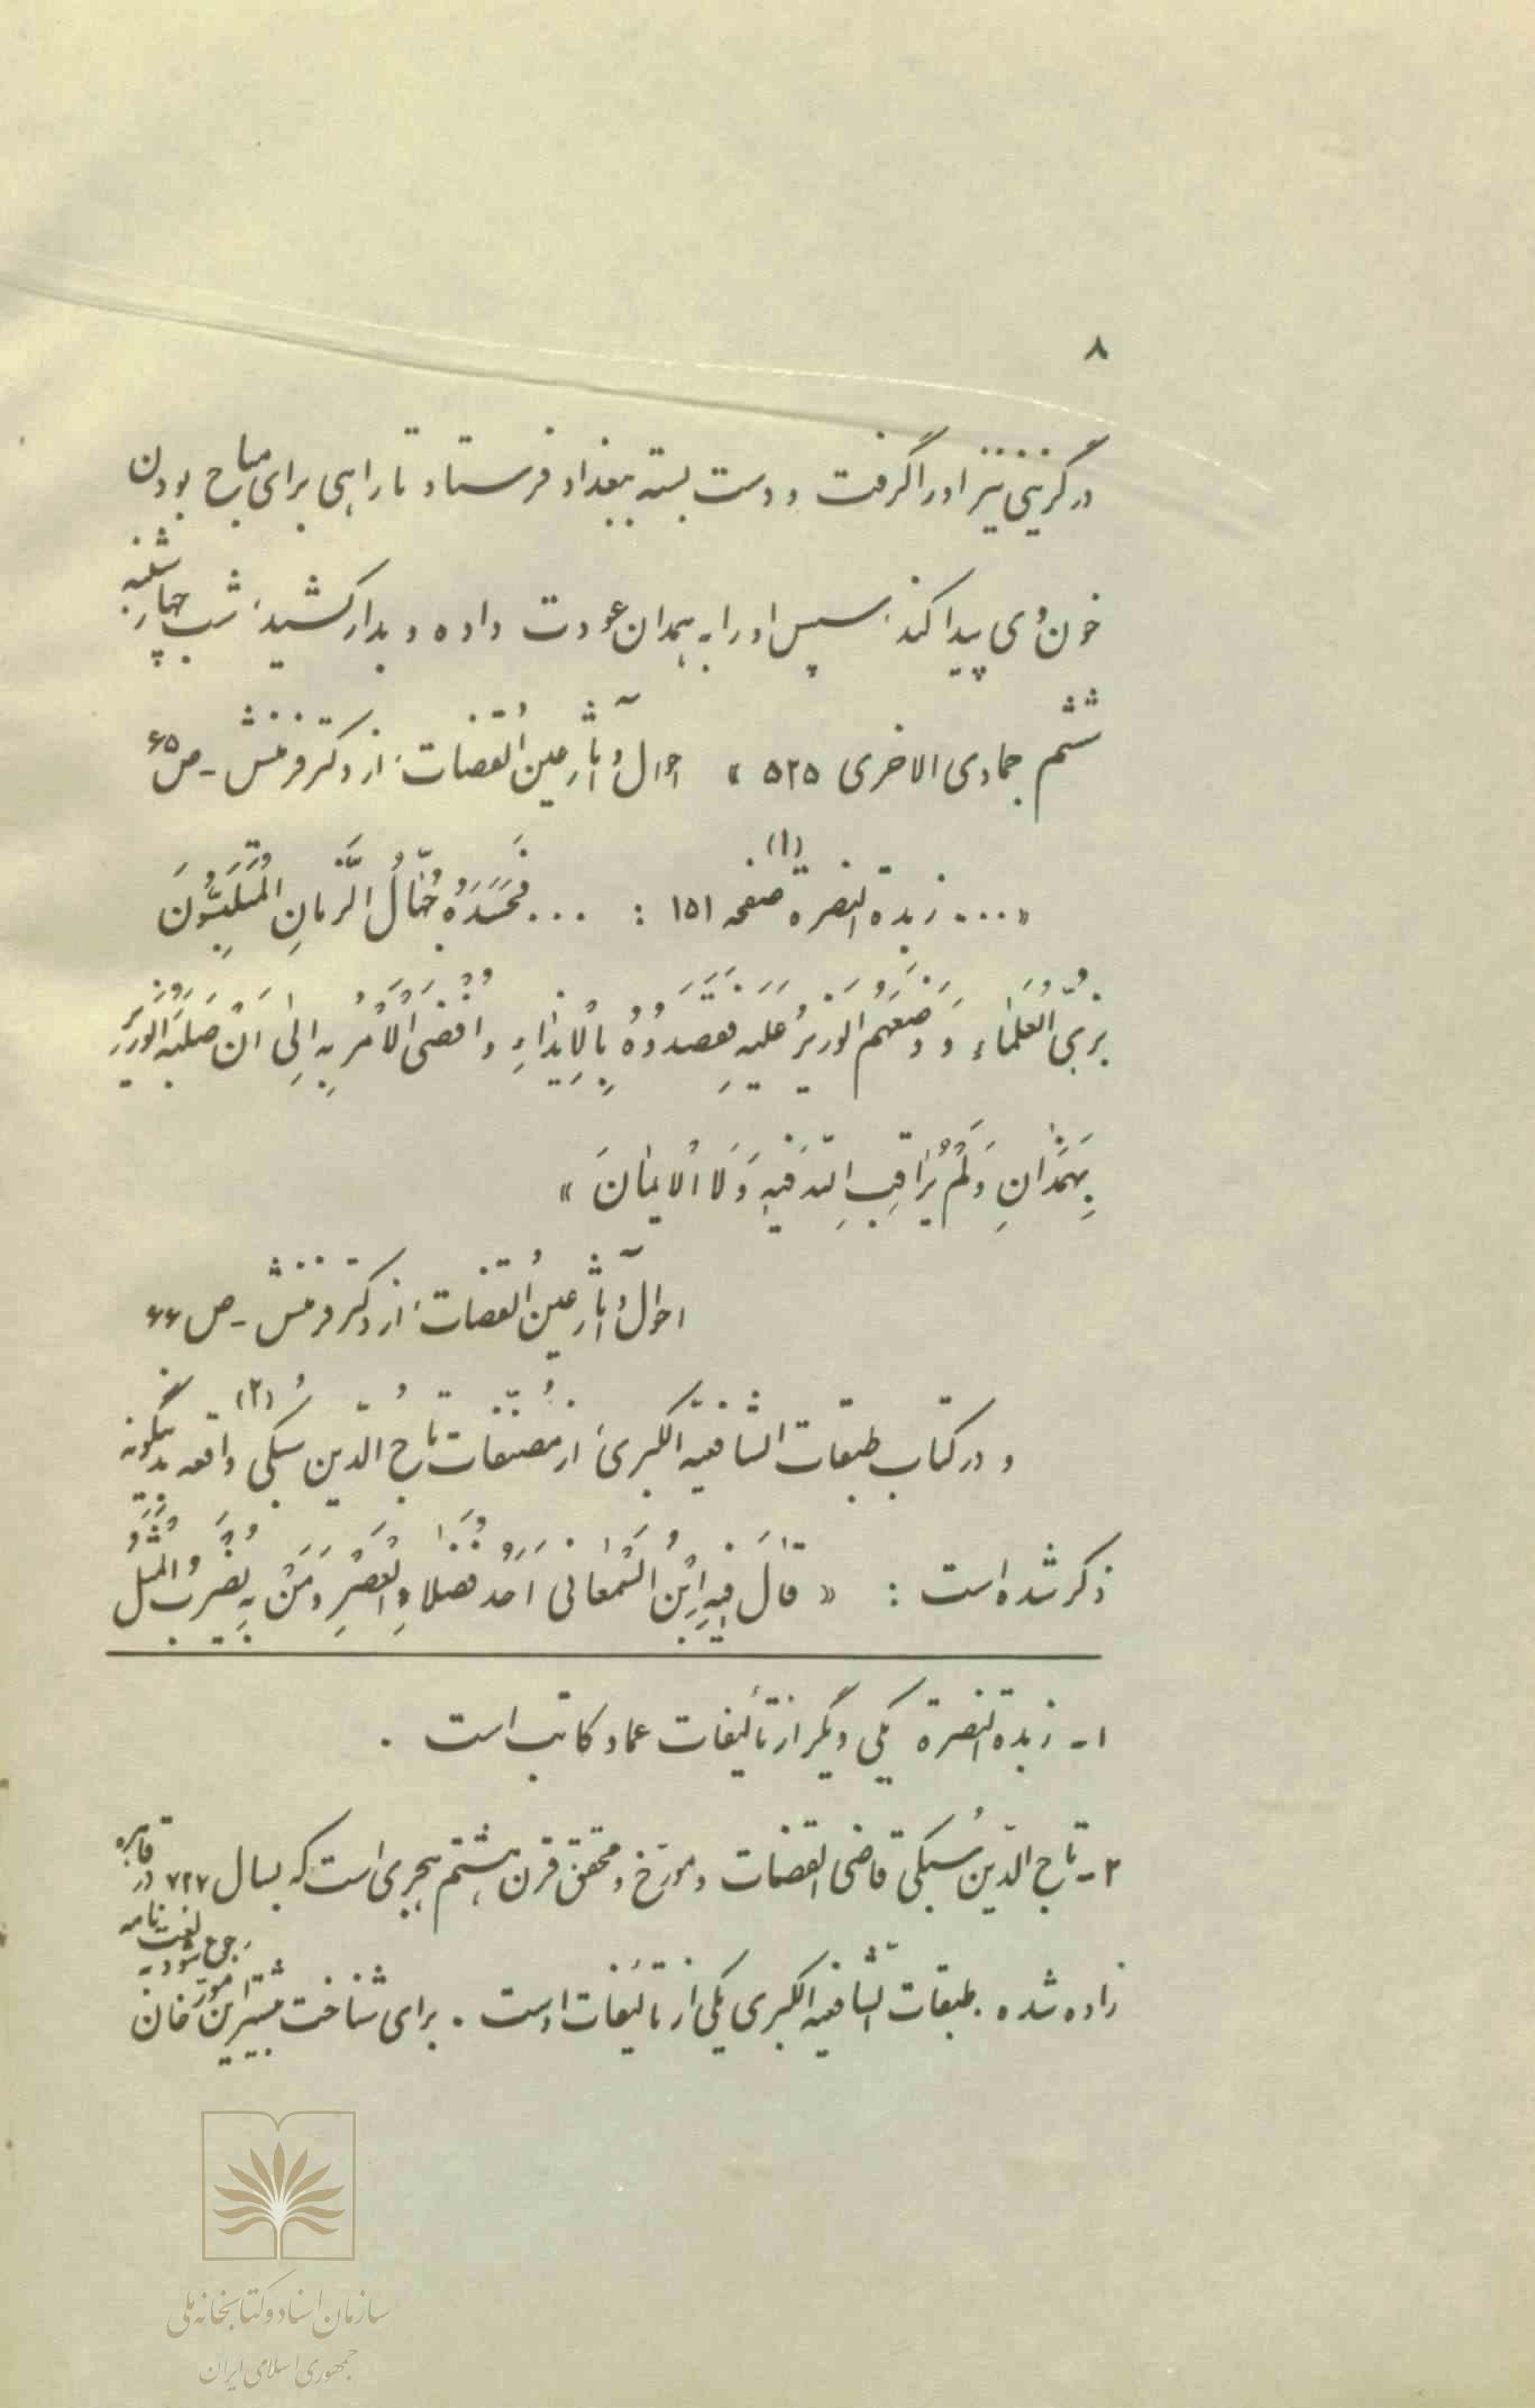 ۸
درگزینی نیز او را گرفت و دست بسته ببغداد فرستاد تا راهی برای مباح بودن
خون وی پیدا کند. سپس او را به همدان عودت داده و بدار کشید، شب چهارشنبه
ششم جمادی الاخری ۵۲۵ » احوال و آثار عین القضات، از دکتر فرمنش - ص ۶۵
«... زبدة النصرة (۱) صفحه ۱۵۱ : ... فَحَسَدَهُ جُهّالُ الزَّمانِ المُتَلَبِّسُونَ
بِزِیّ العُلَماءِ وَ وَضَعَهُم الوَزیرُ عَلَیهِ فَقَصَدُوهُ بِالْاِیذاءِ وَ اَفْضَی الْاَمْرُ بِهِ اِلیٰ اَنْ صَلَبَهُ الوَزیرُ
بِهَمَدٰانِ وَلَمْ یُرٰاقِبِ اللّهَ فیهِ وَلَا الْایمٰانَ »
احوال و آثار عین القضات، از دکتر فرمنش - ص ۶۶
و در کتاب طبقات الشافعیه الکبریٰ از مُصنّفات تاج الدّین سُبکی (۲) واقعه بدینگونه
ذکر شده است : « قالَ فیهِ اِبْنُ السَّمْعانی اَحَدُ فُضَلاءِ العَصْرِ وَ مَنْ بِهِ یُضْرَبُ الْمَثَلُ
۱- زبدة النصرة یکی دیگر از تألیفات عماد کاتب است .
۲- تاج الدّین سُبکی قاضی القضات و مورّخ و محقق قرن هشتم هجری است که بسال ۷۲۷ در قاهره
زاده شده . طبقات الشّافعیه الکبری یکی از تألیفات اوست . برای شناخت بیشتر این مورّخان رجوع شود به لغت نامه
سازمان اسناد و کتابخانه ملی
جمهوری اسلامی ایران